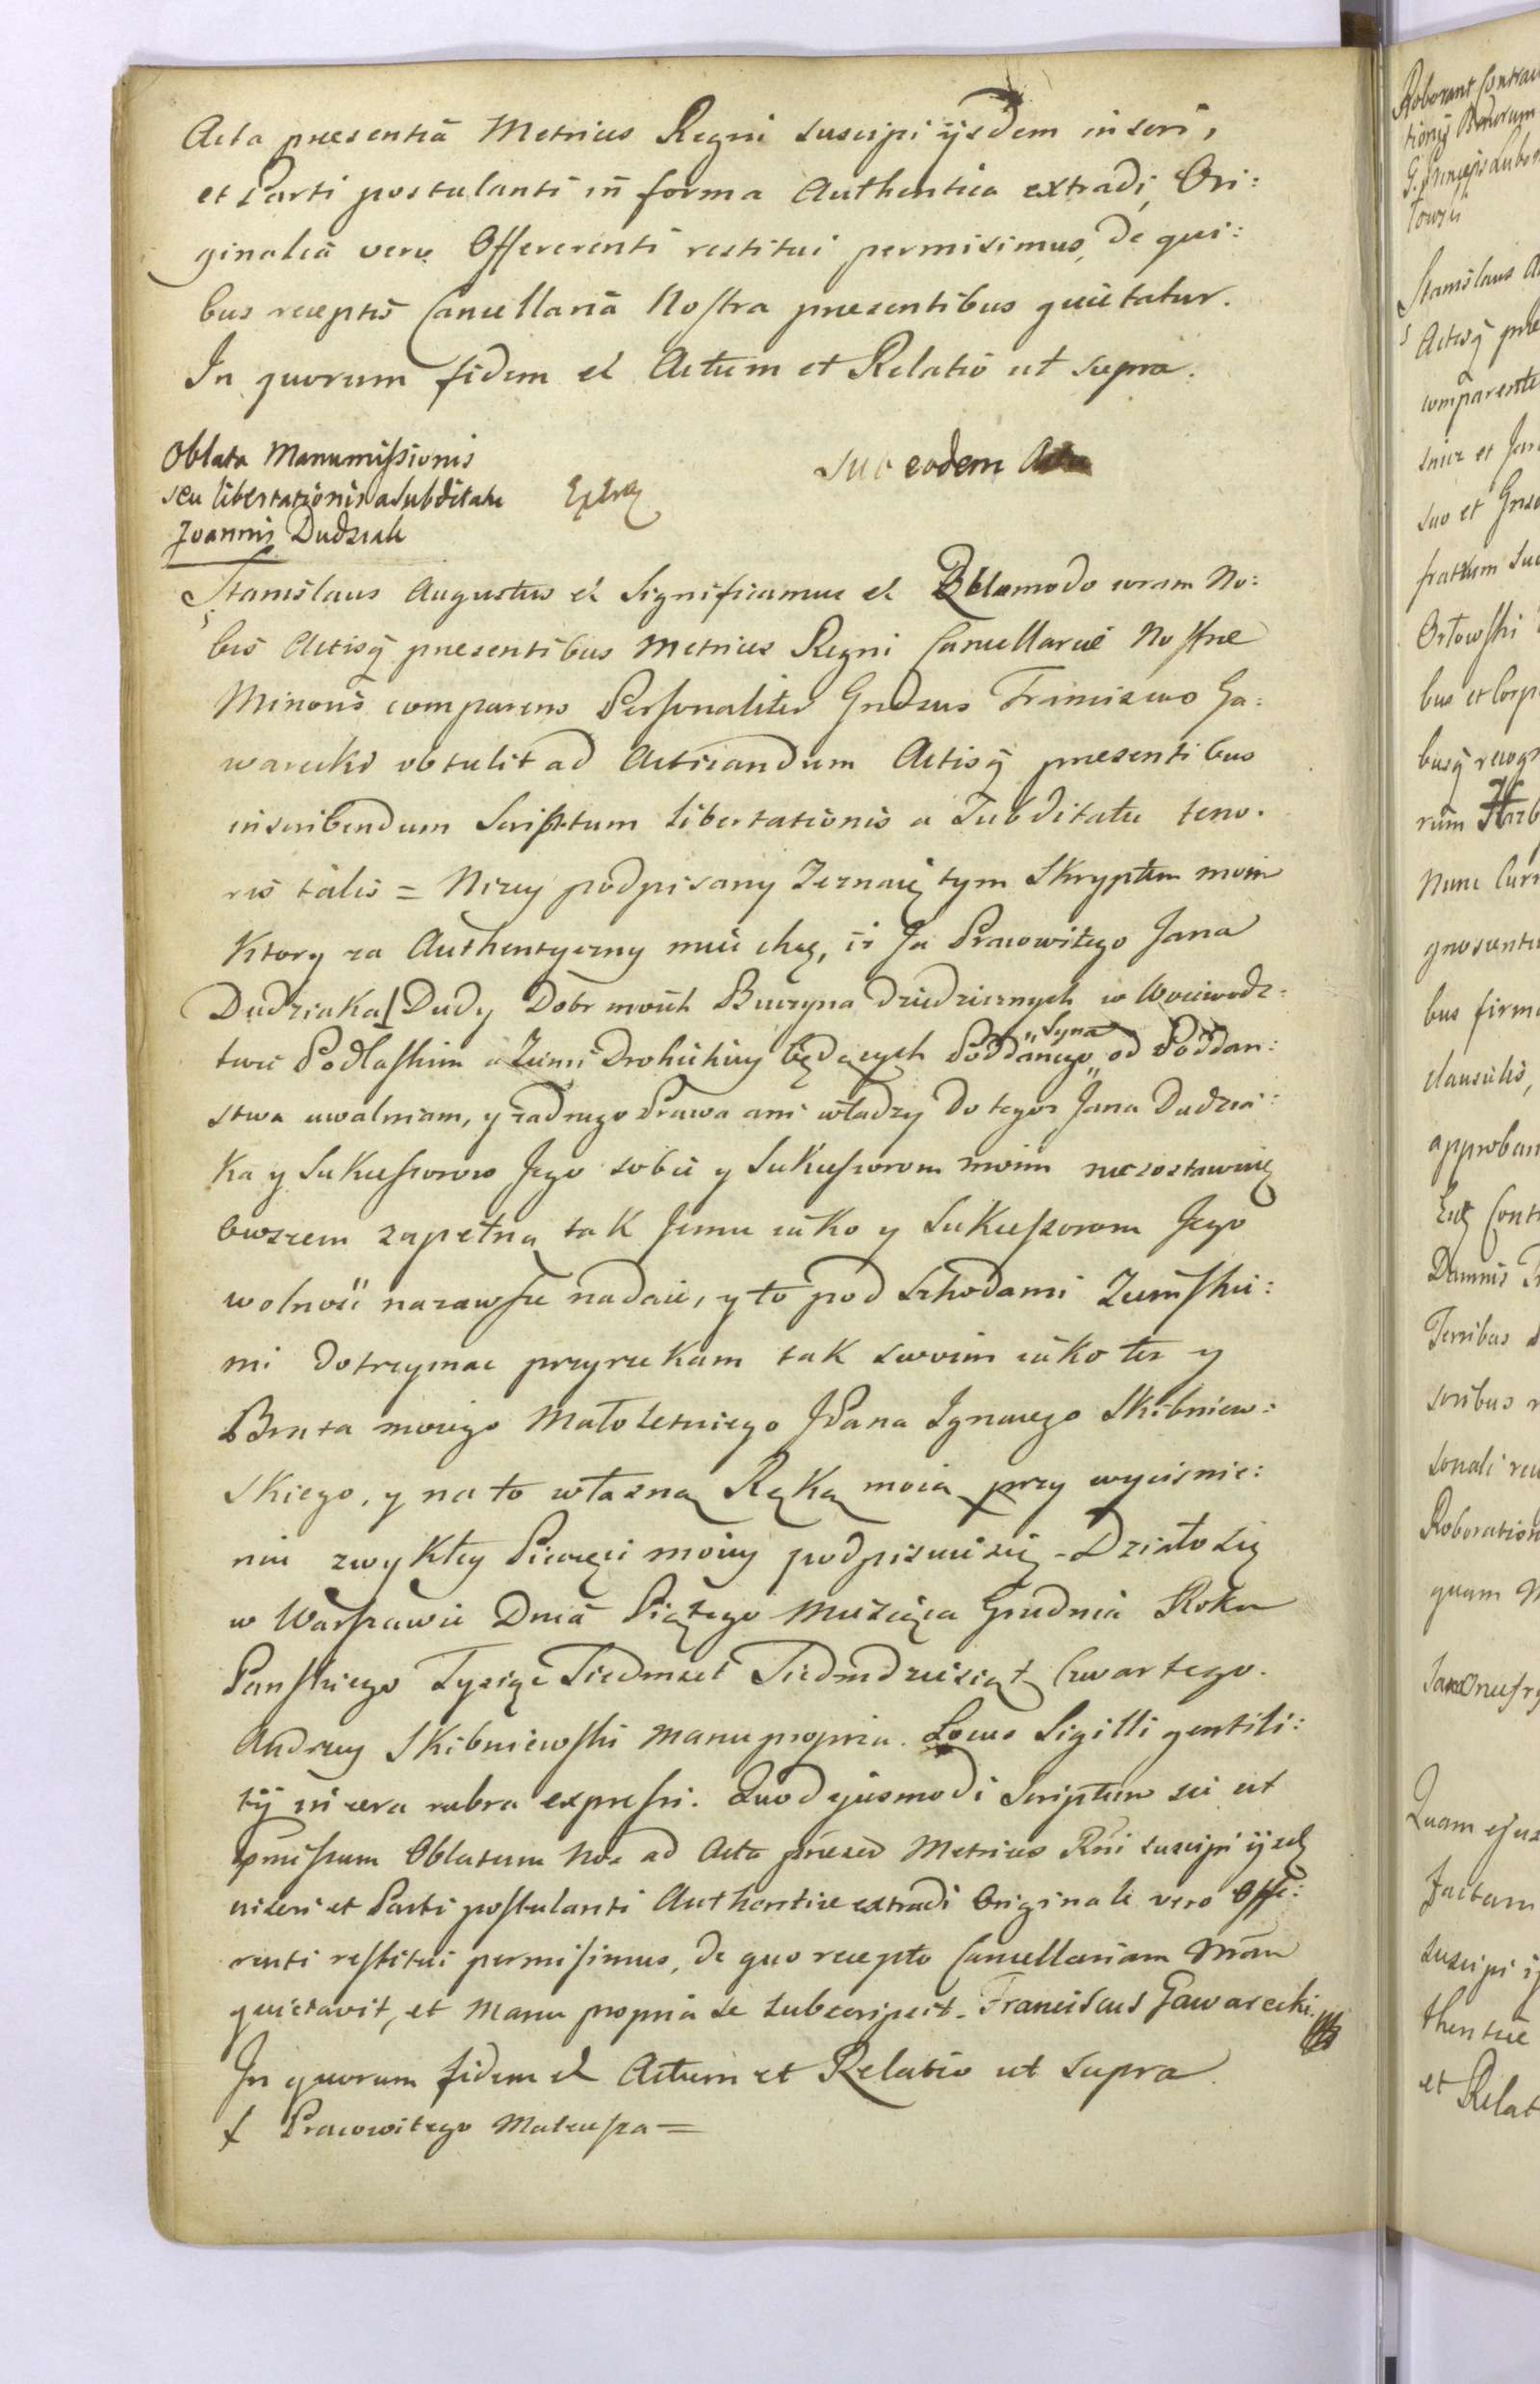 Acta presentia Metrices Regni suscipi ijsdem inseri,
et Parti postulanti in forma Authentica extradi, Ori:
ginalia vero Offererenti restitui permisimus, de qui:
bus receptis Cancellaria Nostra presentibus quietatur.
In quorum fidem et Actum et Relatio ut supra.
Oblata Manumissionis
seu libertationis a subditatu
Joannis Dudziak
Sub eodem Actu
Stanislaus Augustus et Significamus et Quomodo coram No:
bis Actisq presentibus Metrices Regni Cancellariae Nostrae
Minoris comparens Personaliter Gnrosus Franciscus Ga:
warecki obtulit ad Acticandum Actisq presentibus
inscribendum Scriptum libertationis a Subditatu teno.
ris talis = Nizey podpisany Zeznaię tym Skryptem moim
Ktory za Authentyczny mieć chcę, iż Ja Pracowitego Jana
Dudziaka Dudy Dobr moich Buczyna dziedzicznych w Woiewodz:
twie Podlaskim a Ziemi Drohickiey będących Poddanego „Syna„ od Poddan:
stwa uwalniam, y żadnego Prawa ani władzy do tegoż Jana Dudzia:
ka y Sukcessorow Jego sobie y Sukcessorom moim niezostawuię
owszem zapełną tak Jemu iako y Sukcessorom Jego
wolność nazawsze nadaię, y to pod Szkodami Ziemski:
mi dotrzymac przyrzekam tak swoim iako tez y
Brata moiego Małoletniego JPana Ignacego Skibniew:
skiego, y na to własną Ręką moią przy wyciśnie:
niu zwykłey Pieczęci moiey podpisuię się - Działo się
w Warszawie Dnia Piątego Miesiąca Grudnia Roku
Panskiego Tysiąc Siedmset Siedmdziesiąt Czwartego.
Andrzey Skibniewski manu propria. Locus Sigilli gentili:
tij in cera rubra expressi. Quod ejusmodi Scriptum sic ut
pmissum Oblatum Nos ad Acta presen Metrices Rni suscipi ijsd
inseri et Parti postulanti Authentice extradi Originale vero Offe:
renti restitui permisimus, de quo recepto Cancellariam Nram
quietavit, et Manu propria se subscripsit. Franciscus Gawarecki.
In quorum fidem et Actum et Relatio ut supra
Pracowitego Mateusza =